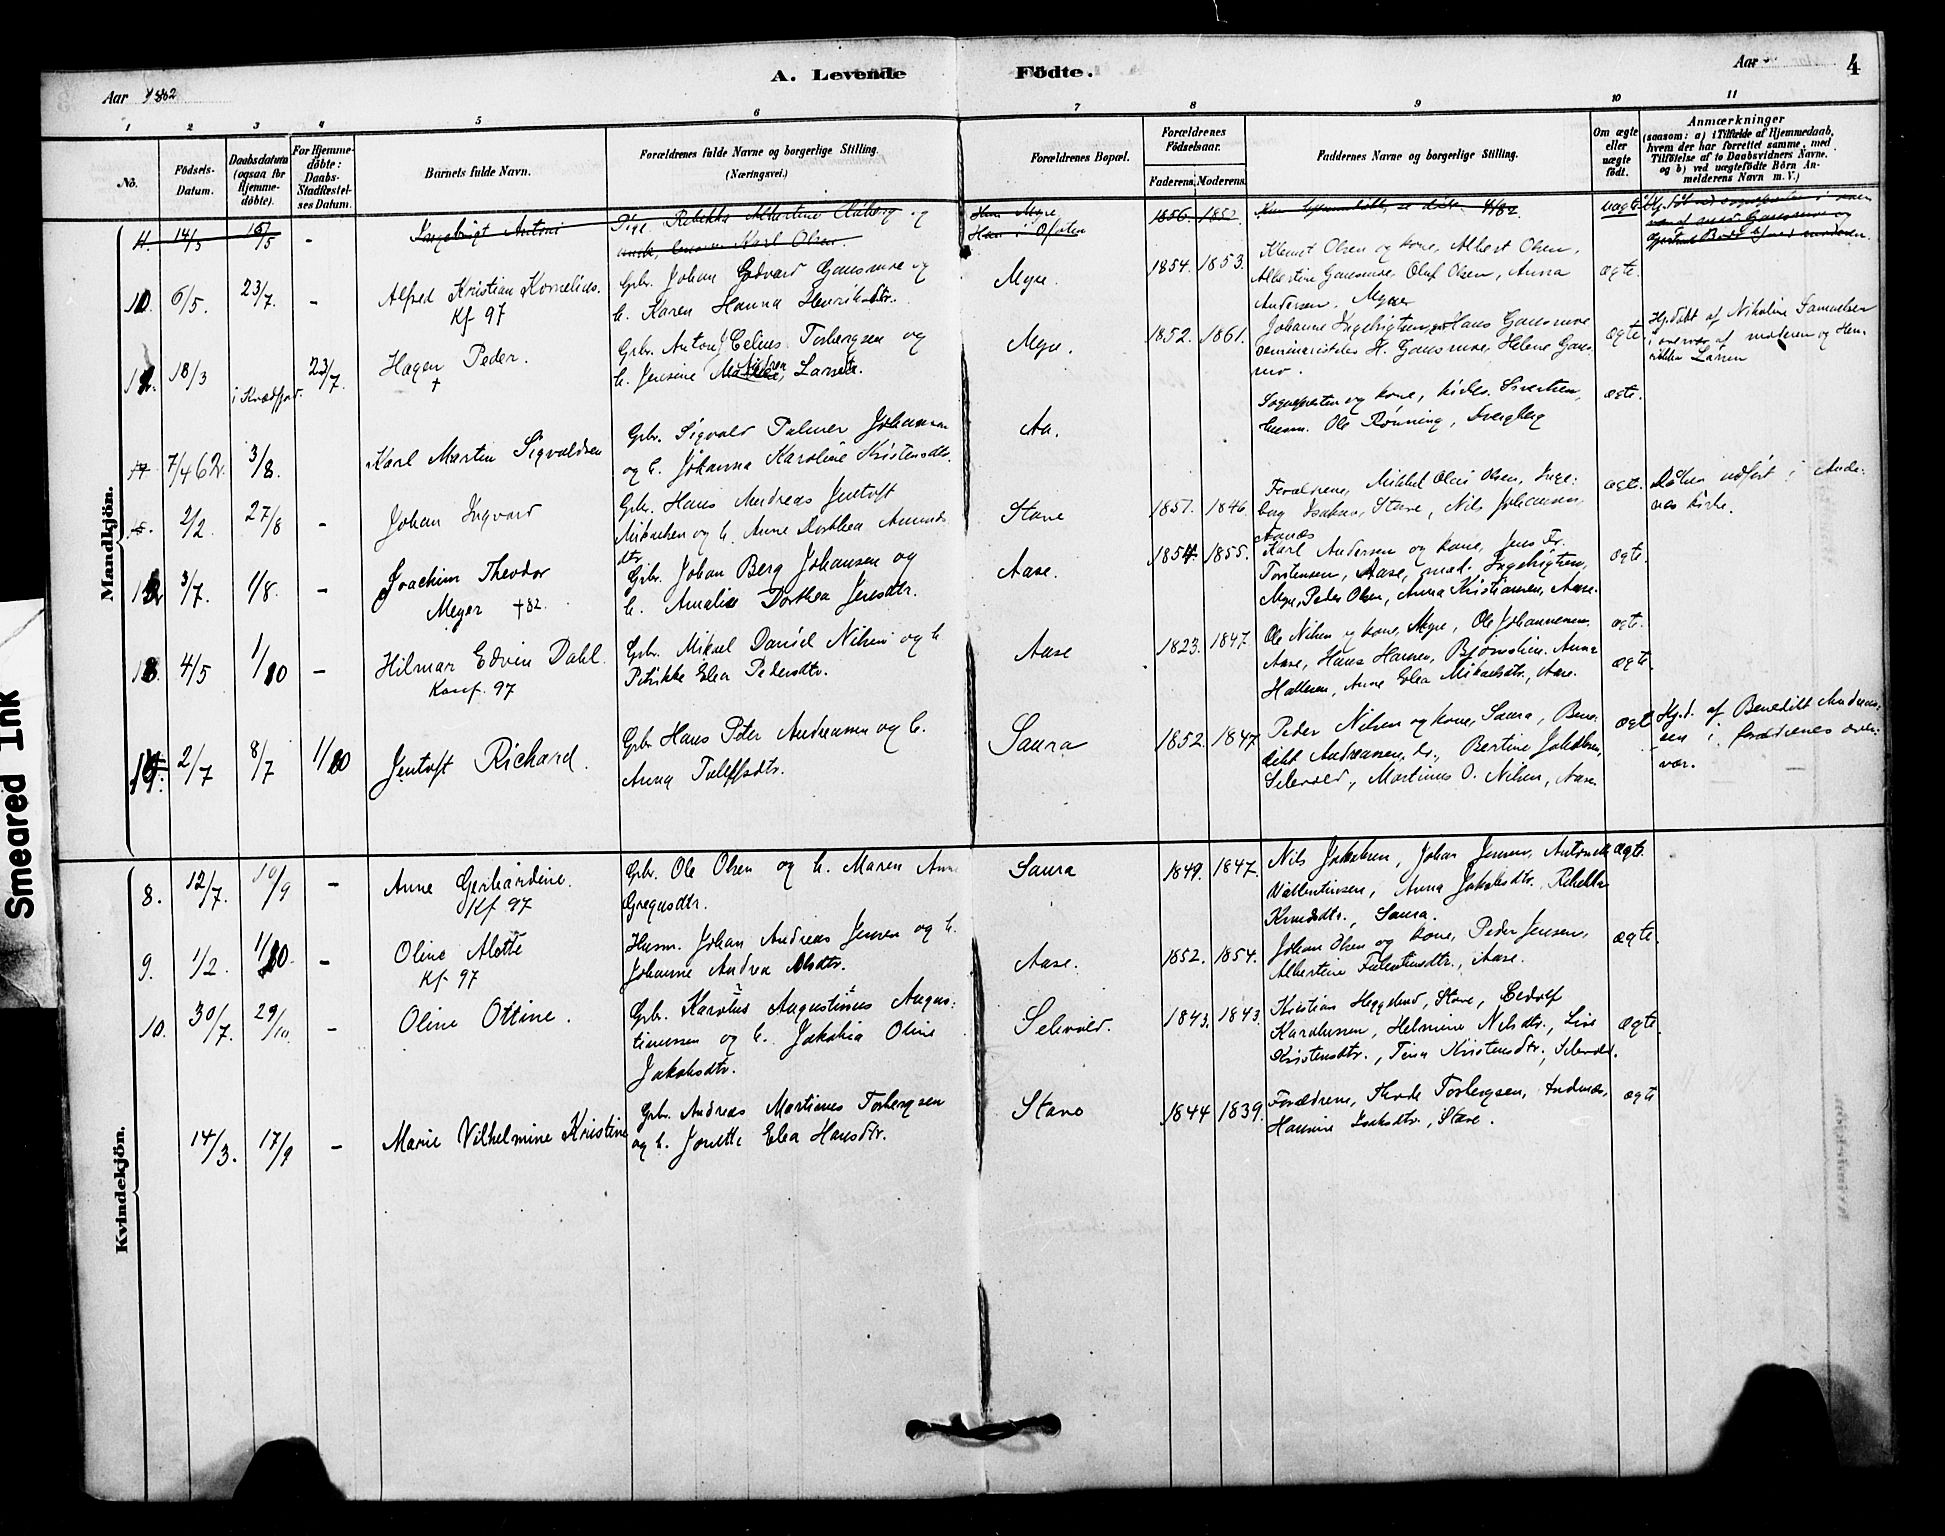 A. Levende Födte.
Aar 1882
Aar
4
1 2 3 4 5 6 7 8 9 10 11
No.
Födsels-Datum.
Daabsdatum (ogsaa for Hjemmedöbte).
For Hjemmedöbte: Daabs-Stadfestelses Datum.
Barnets fulde Navn.
Forældrenes fulde Navne og borgerlige Stilling. (Næringsvei.)
Forældrenes Bopæl.
Forældrenes Födselsaar.
Faderens. Moderens.
Faddernes Navne og borgerlige Stilling.
Om ægte eller uægte födt.
Anmærkninger
(saasom: a) i Tilfælde af Hjemmedaab, hvem der har forrettet samme, med Tilföielse af to Daabsvidners Navne, og b) ved uægtefödte Börn Anmelderens Navn m. V.)
Mandkjön.
11. 14/3 - Ingebrigt Antoni
Pige Rebekka Albertine og
Karl Olsen.
1856. 1852. uægte
10. 6/5. 23/7. - Alfred Kristian Kornelius.
Kf 97
Grbr. Johan Edvard Gausmoe og
h. Karen Hanna Henriksdtr.
Myre. 1854. 1853.
Klemet Olsen og kone, Albert Olsen,
Albertine Gausmoe, Oluf Olsen, Anna
Andersen. Myre
ægte.
18/3 i Kvædfjor. 23/7. Hagen Peder.
+
Grbr. Anton Celius Torbergsen og
h. Jensine Larsdtr.
Myre. 1852. 1861.
Johanne Ingebrigtsen, Hans Gausmoe
seminaristelev H. Gausmoe, Helene Gausmo.
ægte.
Hj.döbt af Nikoline Samuelsen
i overvær af moderen og Hen-
rikke Larsen
7/4 62. 3/8. Karl Martin Sigvaldsen
Grbr. Sigvald Palmer Johansen
og h. Johanna Karoline Kristensdtr.
Aa.
Sognepresten og kone, kirkes. Sivertsen,
Husm. Ole Rönning,
ægte.
2/2 27/8 - Johan Ingvard
Grbr. Hans Andreas Jentoft
Mikalsen og h. Anne Dorthea Amunds-
dtr.
Stave 1851. 1846
Forældrene, Mikkel Olai Olsen, Inge-
borg Isaksen, Stave, Nils Johansen,
ægte. Daaben udført i Ande-
nes kirke.
12. 3/7. 1/8. - Joachim Theodor
Meyer + 82.
Grbr. Johan Berg Johansen og
h. Amalie Dorthea Jensdtr.
Aase. 1854. 1855.
Karl Andersen og kone, Jens Fr.
Torstensen, Aase, Ingebrigtsen,
Myre, Peder Olsen, Anna Kristiansen, Aase.
ægte.
13. 4/5 1/10 - Hilmar Edvin Dahl.
Konf. 97
Grbr. Mikael Daniel Nilsen og h.
Petrikke Elea Pedersdtr.
Aase 1823. 1847.
Ole Nilsen og kone, Myre, Ole Johannesen,
Aase, Hans Hansen, Björnskin. Anna
Halleren, Anne Elea Mikalsdtr., Aase.
ægte.
ægte.
14. 2/7 8/7 1/10 Jentoft Richard.
Grbr Hans Peter Andreassen og h.
Anna Tollefsdtr.
Saura 1852. 1847
Peder Nilsen og kone, Saura, Bene-
dikt Andreassen, do., Bertine Jakobsen,
Selvold, Martinus O. Nilsen, Aase.
ægte
Hj.d. af Benedikt Andreas-
sen i forældrenes over-
vær.
Kvindekjön.
8. 12/7. 10/9 - Anne Gerhardine.
Kf 97
Grbr. Ole Olsen og h. Maren Anne
Gregusdtr.
Saura 1849. 1847.
Nils Jakobsen, Johan Jensen, Antonette
Vallentinsen, Anna Jakobsdtr. Rebekka
Knudsdtr., Saura.
ægte.
9. 1/2. 1/10. - Oline Alette
Kf 97
Husm. Johan Andreas Jensen og h.
Johanne Andrea Olsdtr.
Aase. 1852. 1854.
Johan Olsen og kone, Peder Jensen,
Albertine Falentinsdtr., Aase.
ægte.
10. 30/7. 29/10. - Oline Ottine.
Grbr. Karolus Augustinus Augus-
tinussen og h. Jakobia Oline
Jakobsdtr.
Selvold. 1843. 1843.
Kristian Heggelund, Stave, Eedolf
Karolussen, Helmine Nilsdtr., Lise
Kristensdtr., Tina Kristensdtr., Selvold.
ægte.
14/3. 17/9 - Marie Vilhelmine Kristine
Grbr. Andreas Martinus Torbergsen
og h. Jonette Elea Hansdtr.
Stave 1844 1839.
Forældrene, Torbergsen, Andenæs,
Hansine Isaksdtr., Stave.
ægte
Smeared Ink